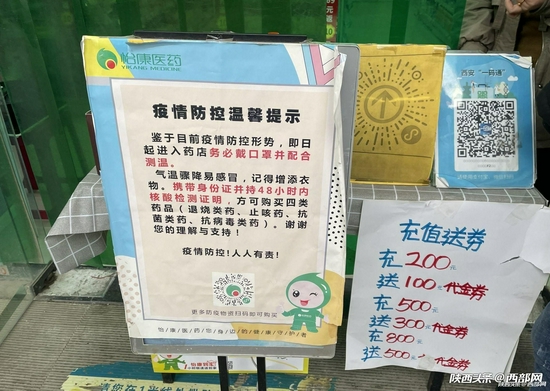 怡康医药
YIKANG MEDICINE
疫情防控温馨提示
鉴于目前疫情防控形势，即日
起进入药店务必戴口罩并配合
测温。
气温骤降易感冒，记得增添衣
物。携带身份证并持48小时内
核酸检测证明，方可购买四类
药品（退烧类药、止咳药、抗
菌类药、抗病毒类药）。谢谢
您的理解与支持！
疫情防控！人人有责！
更多防疫物资扫码即可购买
怡康医药您身边的健康守护者
西安"一码通"
充值送券
充200元
送100元代金券
充500元
送300元代金券
充800元
送500元代金券
陕西头条@西部网